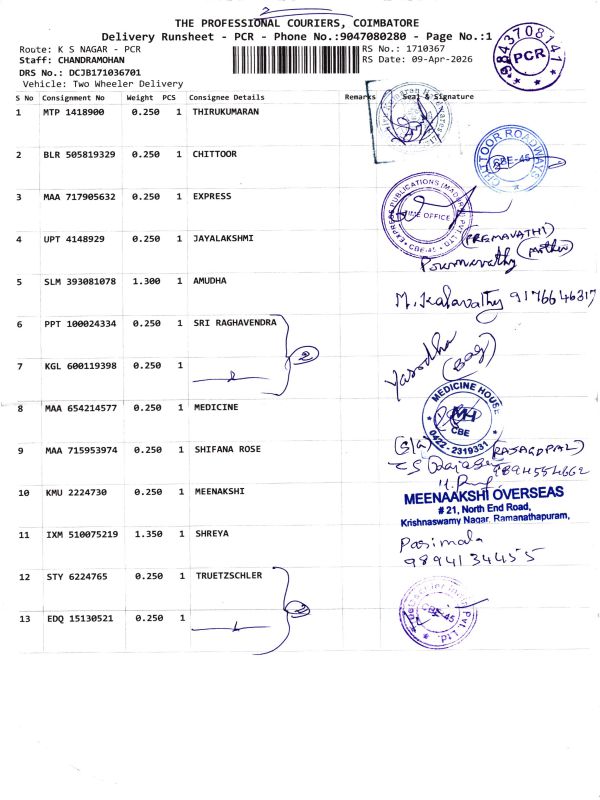 2
THE PROFESSIONAL COURIERS, COIMBATORE
Delivery Runsheet - PCR - Phone No.:9047080280 - Page No.:1
Route: K S NAGAR - PCR
RS No.: 1710367
Staff: CHANDRAMOHAN
RS Date: 09-Apr-2026
DRS No.: DCJB171036701
Vehicle: Two Wheeler Delivery
9843708141
PCR
S No Consignment No Weight PCS Consignee Details Remarks Seal & Signature
1 MTP 1418900 0.250 1 THIRUKUMARAN
2 BLR 505819329 0.250 1 CHITTOOR
CHITTOOR ROADWAYS
CBE-45
3 MAA 717905632 0.250 1 EXPRESS
EXPRESS PUBLICATIONS (MADURAI) PVT. LTD.
TIME OFFICE
CBE-45
4 UPT 4148929 0.250 1 JAYALAKSHMI
(PREMAVATHI)
(Mother)
5 SLM 393081078 1.300 1 AMUDHA
M. Kalavathy 9176646317
6 PPT 100024334 0.250 1 SRI RAGHAVENDRA
2
7 KGL 600119398 0.250 1
Yasodha
(Bag)
8 MAA 654214577 0.250 1 MEDICINE
MEDICINE HOUSE
MH
CBE
0422-2319331
9 MAA 715953974 0.250 1 SHIFANA ROSE
(RAJAGOPAL)
9894554662
10 KMU 2224730 0.250 1 MEENAKSHI
MEENAAKSHI OVERSEAS
# 21, North End Road,
Krishnaswamy Nagar, Ramanathapuram,
11 IXM 510075219 1.350 1 SHREYA
Parimala
9894134455
12 STY 6224765 0.250 1 TRUETZSCHLER
2
13 EDQ 15130521 0.250 1
CBE-45
Pvt. Ltd.